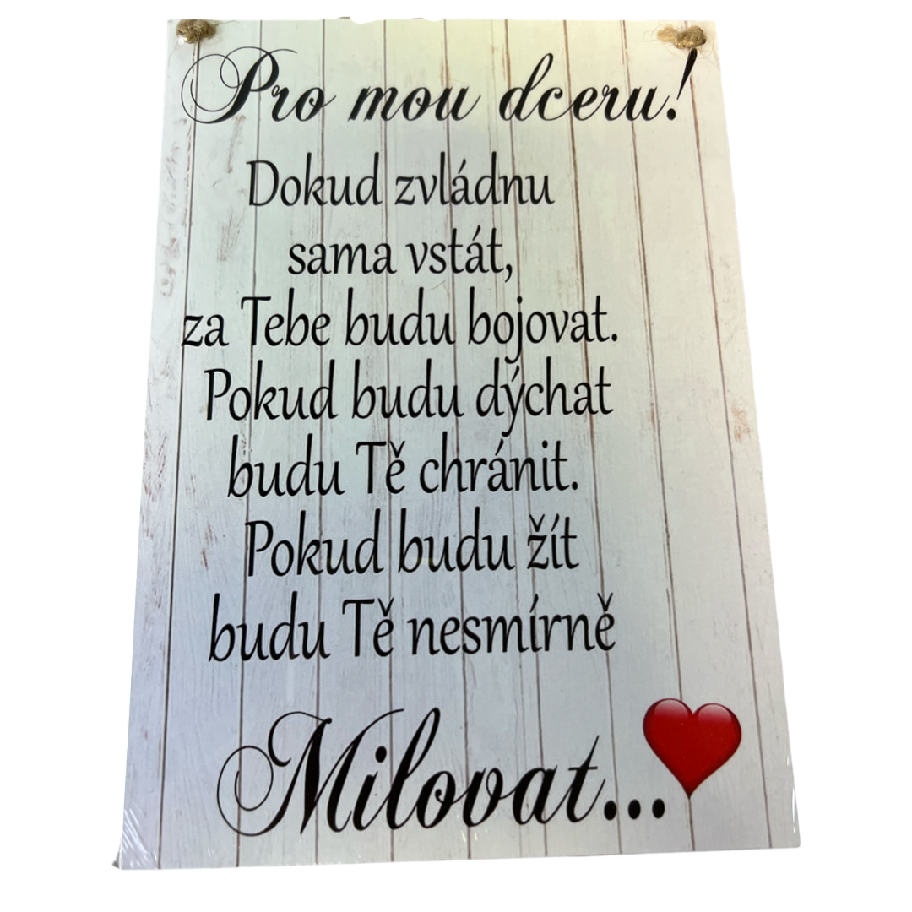 Pro mou dceru!
Dokud zvládnu
sama vstát,
za Tebe budu bojovat.
Pokud budu dýchat
budu Tě chránit.
Pokud budu žít
budu Tě nesmírně
Milovat...